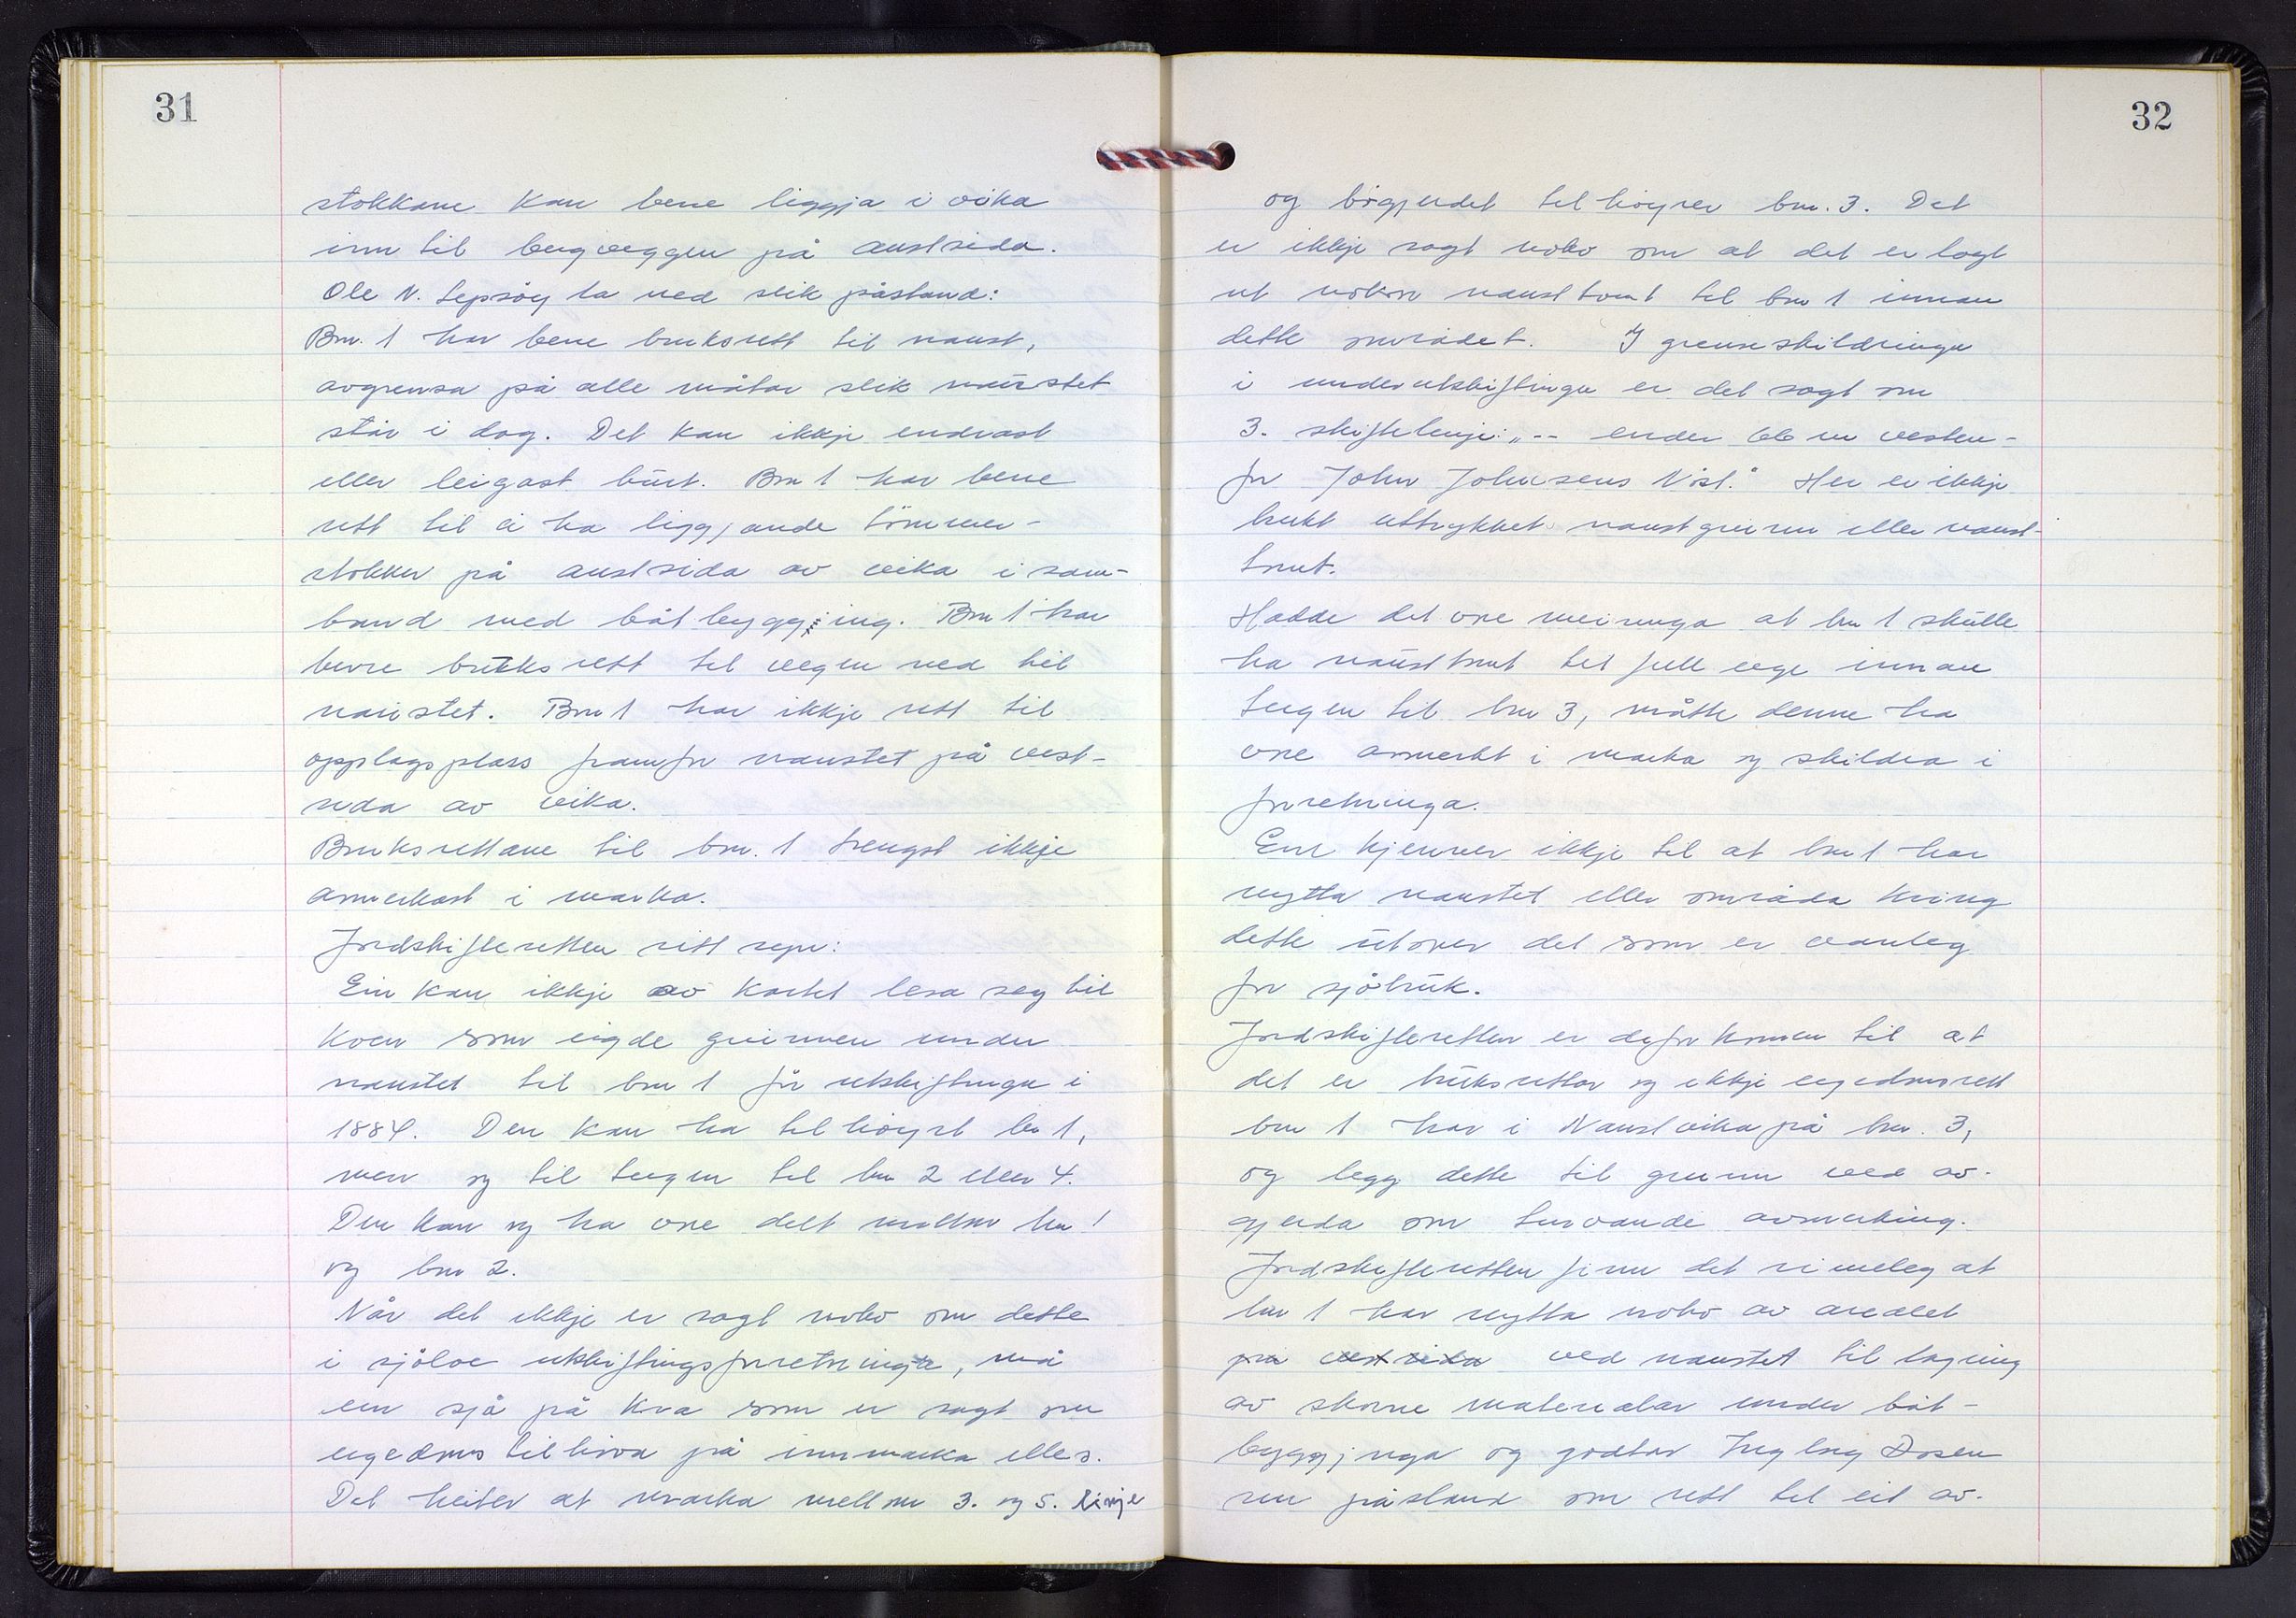 31
stokkane kan bere liggja i vika
inn til bergveggen på austsida.
Ole N. Sepsöy la ned slik påstand:
Bnr. 1 har bere bruksrett til naust,
avgrensa på alle måtar slik naustet
står i dag. Det kan ikkje endrast
eller leigast burt. Bnr 1 har bere
rett til å ha liggjande tömmer-
stokker på austsida av vika i sam-
band med båtbyggjing. Bnr 1 har
berre bruksrett til vegen ned til
naustet. Bnr 1 har ikkje rett til
opplagsplass framfor naustet på vest-
sida av vika.
Bruksrettane til bnr. 1 trengst ikkje
avmerkast i marka.
Jordskifteretten sitt syn:
Ein kan ikkje av kartet lesa seg til
kven som eigde grunnen under
naustet til bnr 1 för utskiftinga i
1884. Den kan ha tilhöyrt bnr 1,
men og til teigen til bnr 2 eller 4.
Den kan og ha vore delt mellom bnr 1
og bnr 2.
Når det ikkje er sagt noko om dette
i sjölve utskiftingsforretninga, må
ein sjå på kva som er sagt om
eigedomstilhöva på innmarka elles.
Det heiter at marka mellom 3. og 5. linje
32
og bögjerdet tilhöyrer bnr. 3. Det
er ikkje sagt noko om at det er lagt
ut nokon nausttomt til bnr 1 innan
dette området. I grenseskildringa
i underutskiftinga er det sagt om
3. skiftelinje: „-- ender 66 m vesten-
for John Johnsens Nöst." Her er ikkje
brukt uttrykket naustgrunn eller naust-
tomt.
Hadde det vore meininga at bnr 1 skulle
ha nausttomt til full eige innan
teigen til bnr 3, måtte denne ha
vore avmerkt i marka og skildra i
forretninga.
Ein kjenner ikkje til at bnr 1 har
nytta naustet eller områda kring
dette utover det som er vanleg
for sjöbruk.
Jordskifteretten er defor komen til at
det er bruksrettar og ikkje eigedomsrett
bnr 1 har i Naustvika på bnr. 3,
og legg dette til grunn ved av-
gjerda om turvande avmerking.
Jordskifteretten finn det rimeleg at
bnr 1 har nytta noko av arealet
på vestsida ved naustet til lagring
av skorne materialar under båt-
byggjinga og godtar Ingbrg Dosen
sin påstand om rett til eit av-